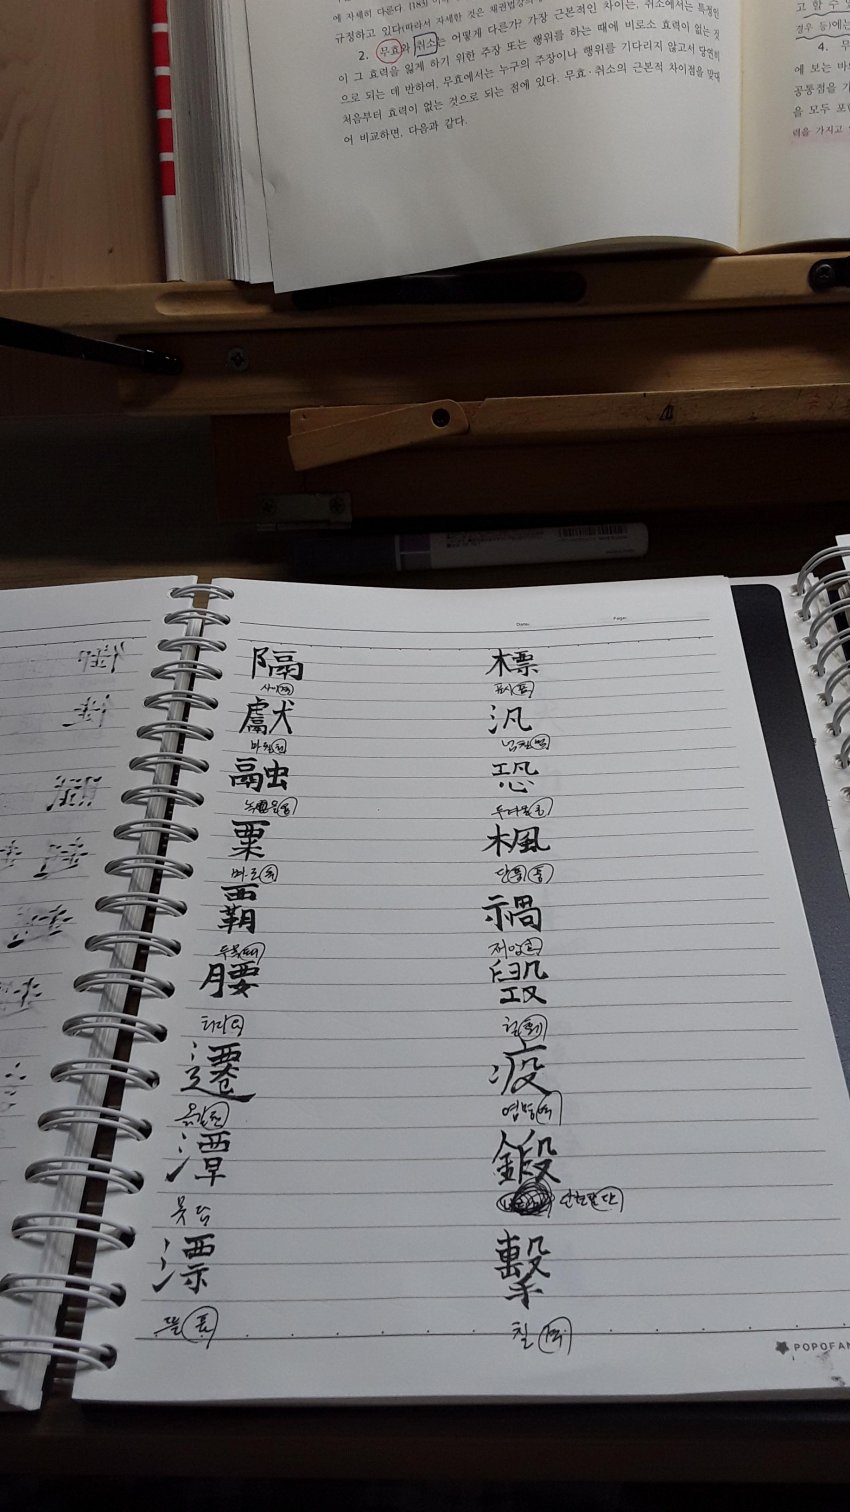 규정하고 있다(따라서 자세한 것은 채권법강의
2. 무효와 취소는 어떻게 다른가? 가장 근본적인 차이는, 취소에서는 특정인
이 그 효력을 잃게 하기 위한 주장 또는 행위를 하는 때에 비로소 효력이 없는 것
으로 되는 데 반하여, 무효에서는 누구의 주장이나 행위를 기다리지 않고서 당연히
처음부터 효력이 없는 것으로 되는 점에 있다. 무효·취소의 근본적 차이점을 맞대
어 비교하면, 다음과 같다.
고 할 수
경우 등)에는
4. 무
에 보는 바
공통점을 가
을 모두 포
력을 가지고
Date: Page:
隔 標
사이(격) 표시(표)
獻 汎
바칠(헌) 넘칠(범)
融 恐
녹을(융) 두려울(공)
粟 楓
벼 (속) 단풍(풍)
覇 禍
두목(패) 재앙(화)
腰 毁
허리(요) 헐(훼)
遷 疫
옮길(천) 염병(역)
潭 鍛
못 담 쇠불릴(단)
漂 擊
뜰(표) 칠(격)
POPOFAN